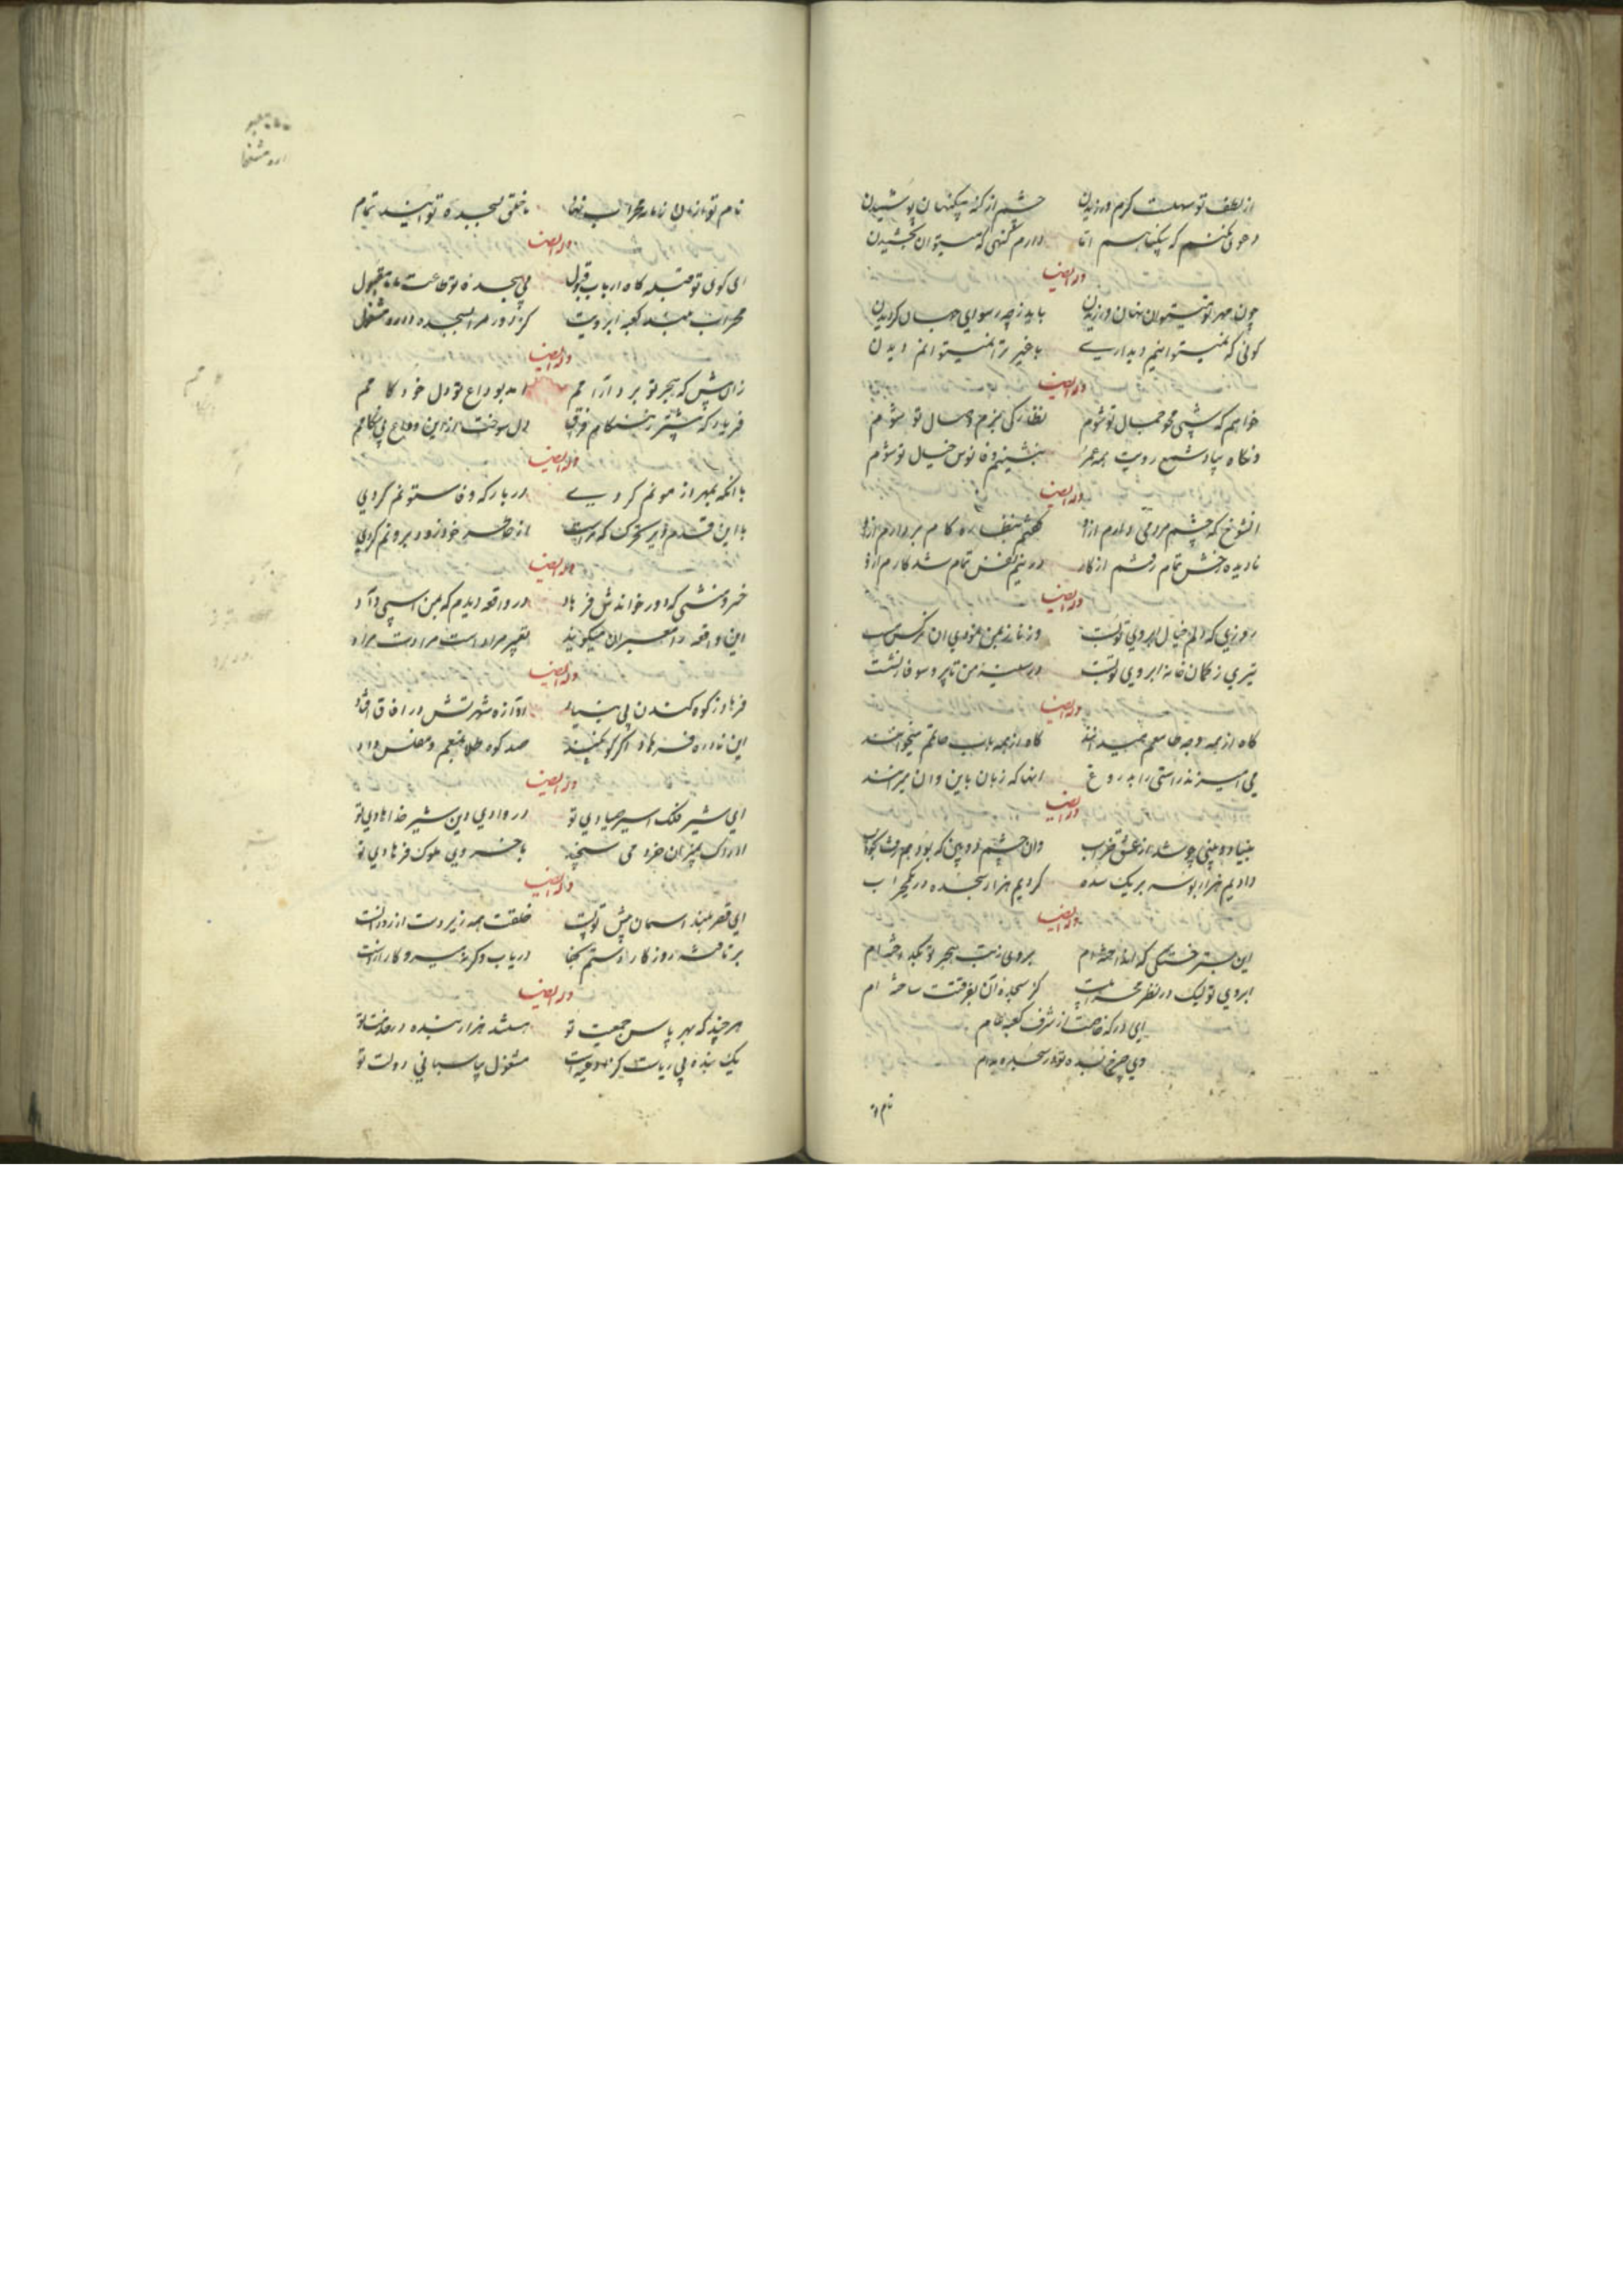 از لطف تو سهلست کرم ورزیدن چشم از گنه بیگنهان پوشیدن
دعوی نکنم که بیگناهم اما دارم گنهی که میتوان بخشیدن
وله ایضا
چون مهر تو نیستوان نهان ورزیدن باید ز چه رسوای جهان گردیدن
گوئی که نمیتوانیم دیداری با غیر ترا نمیتوانم دیدن
وله ایضا
خواهم که شبی محو جمال تو شوم نظارگی بزم وصال تو شوم
وانگاه بیاد شمع رویت همه عمر بنشینم و فانوس خیال تو شوم
وله ایضا
انشوخ که چشم مردمی دارم ازو گفتم بنظاره کام بردارم ازو
نادیده رخش تمام رفتم از کار در نیم نفس تمام شد کارم ازو
وله ایضا
روزی که دلم خیال ابروی تو بست
تیری ز کمان خانه ابروی تو جست در سینه من تا پر و سوفار نشست
وله ایضا
گاه از همه وجه طامعم میدانند گاه از همه باب حاتمم میخوانند
می آمیزند راستی را بدروغ اینها که زبان باین و آن میرانند
وله ایضا
وان چشم دو بین که بود هم رفت بخواب
دادیم هزار بوسه بر یک سده کردیم هزار سجده در یک محراب
وله ایضا
این بستر خستگی که انداخته ام بروی
ابروی تو لیک در نظر محرابیست کز سجده آن بفرقتت ساخته ام
ای درگه خاصت از شرف کعبه عام
وی چرخ بنده تو در سجده مدام
نام تو
نام تو
خلقی بسجده تو آیند تمام
وله ایضا
ای کوی تو قبله گاه ارباب قبول بی سجده تو طاعت ما نامقبول
محراب کعبه ابرویت کز دور مرا بسجده دارد مشغول
وله ایضا
زان پیش که هجر تو برد آرامم آمد بوداع تو دل خود کامم
فریاد که پیشتر ز هنگام فراق دل سوخت ازین وداع بی هنگامم
وله ایضا
با آنکه بمهر آزمونم کردی در بار که وفا ستونم کردی
از خاطر خود زود برونم کردی
وله ایضا
خسرو منشی که دور خواندش فرهاد در واقعه دیدم که بمن اسپی داد
این واقعه را معبران میگویند تعبیر مراد است مرادت مراد
وله ایضا
فرهاد ز کوه کندن بی بنیاد آوازه شهرتش در آفاق افتاد
این نادره فرهاد صد کوه طلا بمنعم و مفلس داد
وله ایضا
ای شیر فلک اسیر صیادی تو در وادی دین شیر خدا هادی تو
ادراک بمیزان خرد می سنجد با خسروی ملوک فرهادی تو
وله ایضا
ای قصر بلند آسمان پیش تو پست خلقت همه زیردست از روز الست
بر تافته روزگار دستم بجفا دریاب وگرنه میرود کار از دست
وله ایضا
هرچند که بهر پاس جمعیت تو هستند هزار بنده در خدمت تو
یک بنده بی ریاست مشغول بپاسبانی دولت تو